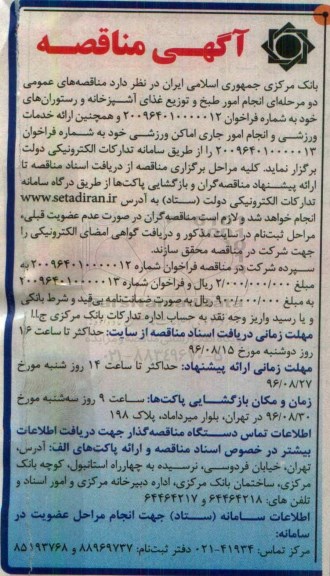 آگهی مناقصه
بانک مرکزی جمهوری اسلامی ایران در نظر دارد مناقصه‌های عمومی
دو مرحله‌ای انجام امور طبخ و توزیع غذای آشپزخانه و رستوران‌های
خود به شماره فراخوان ۲۰۰۹۶۴۰۱۰۰۰۰۰۱۲ و همچنین ارائه خدمات
ورزشی و انجام امور جاری اماکن ورزشی خود به شماره فراخوان
۲۰۰۹۶۴۰۱۰۰۰۰۰۱۳ را از طریق سامانه تدارکات الکترونیکی دولت
برگزار نماید. کلیه مراحل برگزاری مناقصه از دریافت اسناد مناقصه تا
ارائه پیشنهاد مناقصه‌گران و بازگشایی پاکت‌ها از طریق درگاه سامانه
تدارکات الکترونیکی دولت (ستاد) به آدرس www.setadiran.ir
انجام خواهد شد و لازم است مناقصه‌گران در صورت عدم عضویت قبلی،
مراحل ثبت‌نام در سایت مذکور و دریافت گواهی امضای الکترونیکی را
جهت شرکت در مناقصه محقق سازند.
سپرده شرکت در مناقصه فراخوان شماره ۲۰۰۹۶۴۰۱۰۰۰۰۰۱۲ به
مبلغ ۲/۰۰۰/۰۰۰/۰۰۰ ریال و فراخوان شماره ۲۰۰۹۶۴۰۱۰۰۰۰۰۱۳
به مبلغ ۹۰۰/۰۰۰/۰۰۰ ریال به صورت ضمانت‌نامه بی‌قید و شرط بانکی
و یا رسید واریز وجه نقد به حساب اداره تدارکات بانک مرکزی ج.ا.ا
مهلت زمانی دریافت اسناد مناقصه از سایت: حداکثر تا ساعت ۱۶
روز دوشنبه مورخ ۹۶/۰۸/۱۵
مهلت زمانی ارائه پیشنهاد: حداکثر تا ساعت ۱۴ روز شنبه مورخ
۹۶/۰۸/۲۷
زمان و مکان بازگشایی پاکت‌ها: ساعت ۹ روز سه‌شنبه مورخ
۹۶/۰۸/۳۰ در تهران، بلوار میرداماد، پلاک ۱۹۸
اطلاعات تماس دستگاه مناقصه‌گذار جهت دریافت اطلاعات
بیشتر در خصوص اسناد مناقصه و ارائه پاکت‌های الف: آدرس،
تهران، خیابان فردوسی، نرسیده به چهارراه استانبول، کوچه بانک
مرکزی، ساختمان بانک مرکزی، اداره دبیرخانه مرکزی و امور اسناد و
تلفن های: ۶۴۴۶۴۲۱۸ و ۶۴۴۶۴۲۱۷
اطلاعات سامانه (ستاد) جهت انجام مراحل عضویت در
سامانه:
مرکز تماس: ۴۱۹۳۴-۰۲۱ دفتر ثبت‌نام: ۸۸۹۶۹۷۳۷ و ۸۵۱۹۳۷۶۸